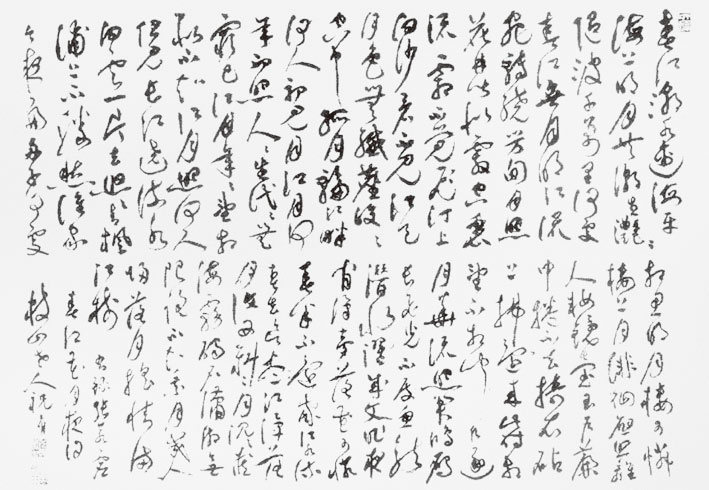 春江潮水連海平
海上明月共潮生灔〻
隨波千萬里何處
春江無月明江流
宛轉繞芳甸月照
花林皆似霰空裏
流霜不覺飛汀上
白沙看不見江天
一色無纖塵皎〻
空中孤月輪江畔
何人初見月江月何
年初照人人生代〻無
窮已江月年〻望相
似不知江月照何人
但見長江送流水
白雲一片去悠悠青楓
浦上不勝愁誰家
今夜扁舟子何處
相思明月樓可憐
樓上月徘徊應照離
人妝鏡臺玉戶簾
中捲不去擣衣砧
上拂還來此時相
望不相聞
月華流照君鴻雁
長飛光不度魚龍
潛躍水成文昨夜
閑潭夢落花可憐
春半不還家江水流
春去欲盡江潭落
月復西斜月沉藏
海霧碣石瀟湘無
限路不知乘月幾人
歸落月搖情滿
江樹 張若虛
春江花月夜詩
枝山老人祝允明